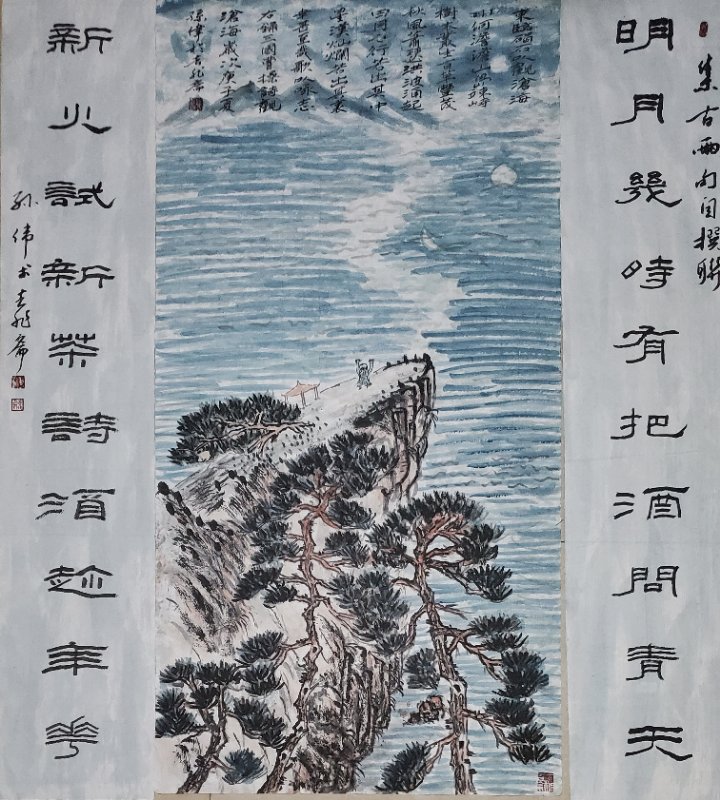 集古兩句自撰聯
明月幾時有把酒問青天
東臨碣石以觀滄海
水何澹澹山島竦峙
樹木叢生百草豐茂
秋風蕭瑟洪波涌起
日月之行若出其中
星漢灿爛若出其裏
幸甚至哉歌以詠志
右錄三國曹操詩觀
滄海歲次庚子夏
孫偉於
新火試新茶詩須趂年華
孫偉书